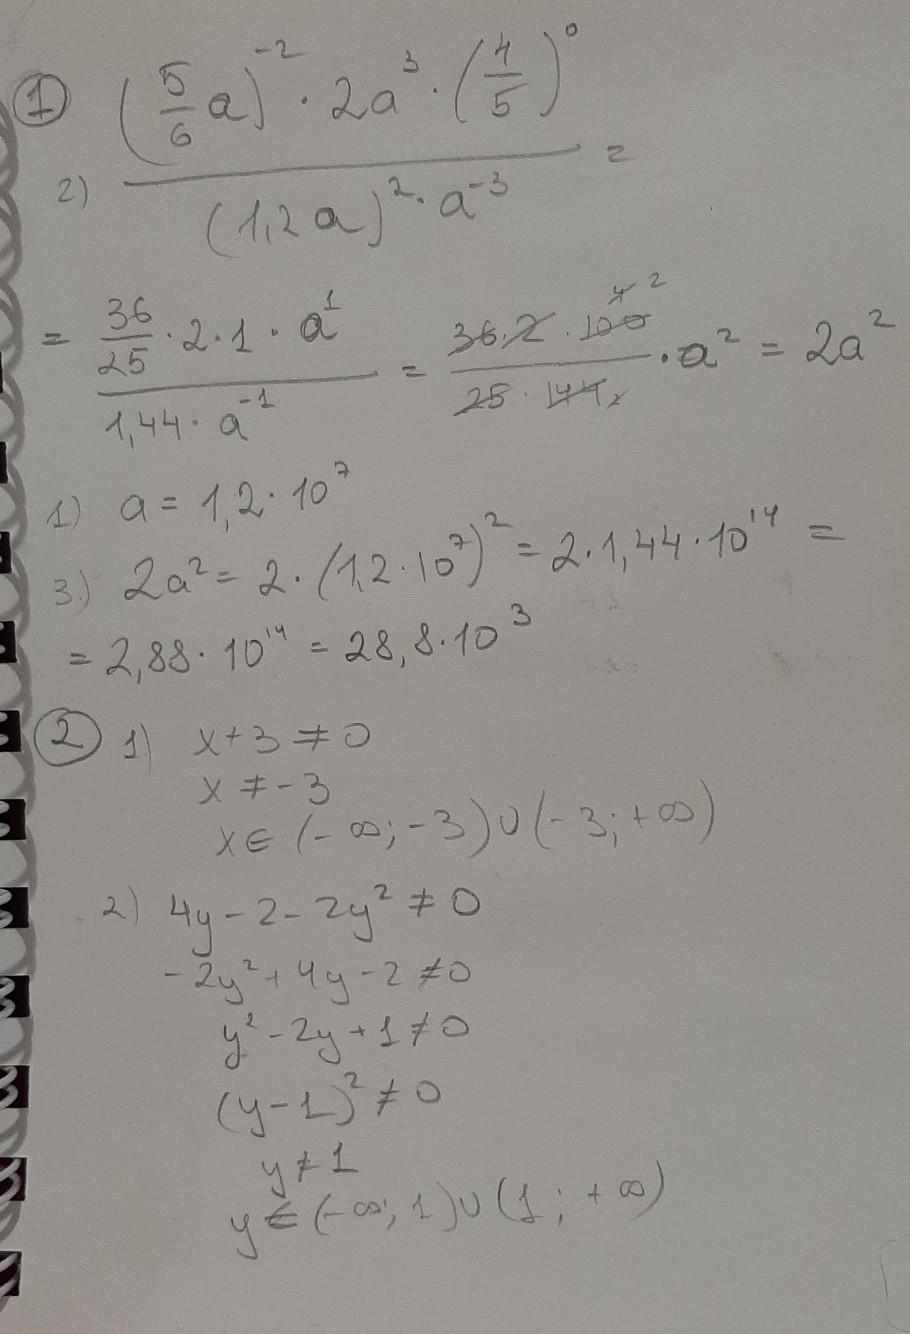 ① (5/6 a)⁻² · 2a³ · (4/5)⁰
2) ———————————— =
(1,2a)² · a⁻³
= (36/25 · 2 · 1 · a¹)/(1,44 · a⁻¹) = (36 · 2 · 100)/(25 · 144) · a² = 2a²
1) a = 1,2 · 10⁷
3.) 2a² = 2 · (1,2 · 10⁷)² = 2 · 1,44 · 10¹⁴ =
= 2,88 · 10¹⁴ = 28,8 · 10³
② 1) x + 3 ≠ 0
x ≠ -3
x ∈ (-∞; -3) ∪ (-3; +∞)
2) 4y - 2 - 2y² ≠ 0
-2y² + 4y - 2 ≠ 0
y² - 2y + 1 ≠ 0
(y - 1)² ≠ 0
y ≠ 1
y ∈ (-∞; 1) ∪ (1; +∞)